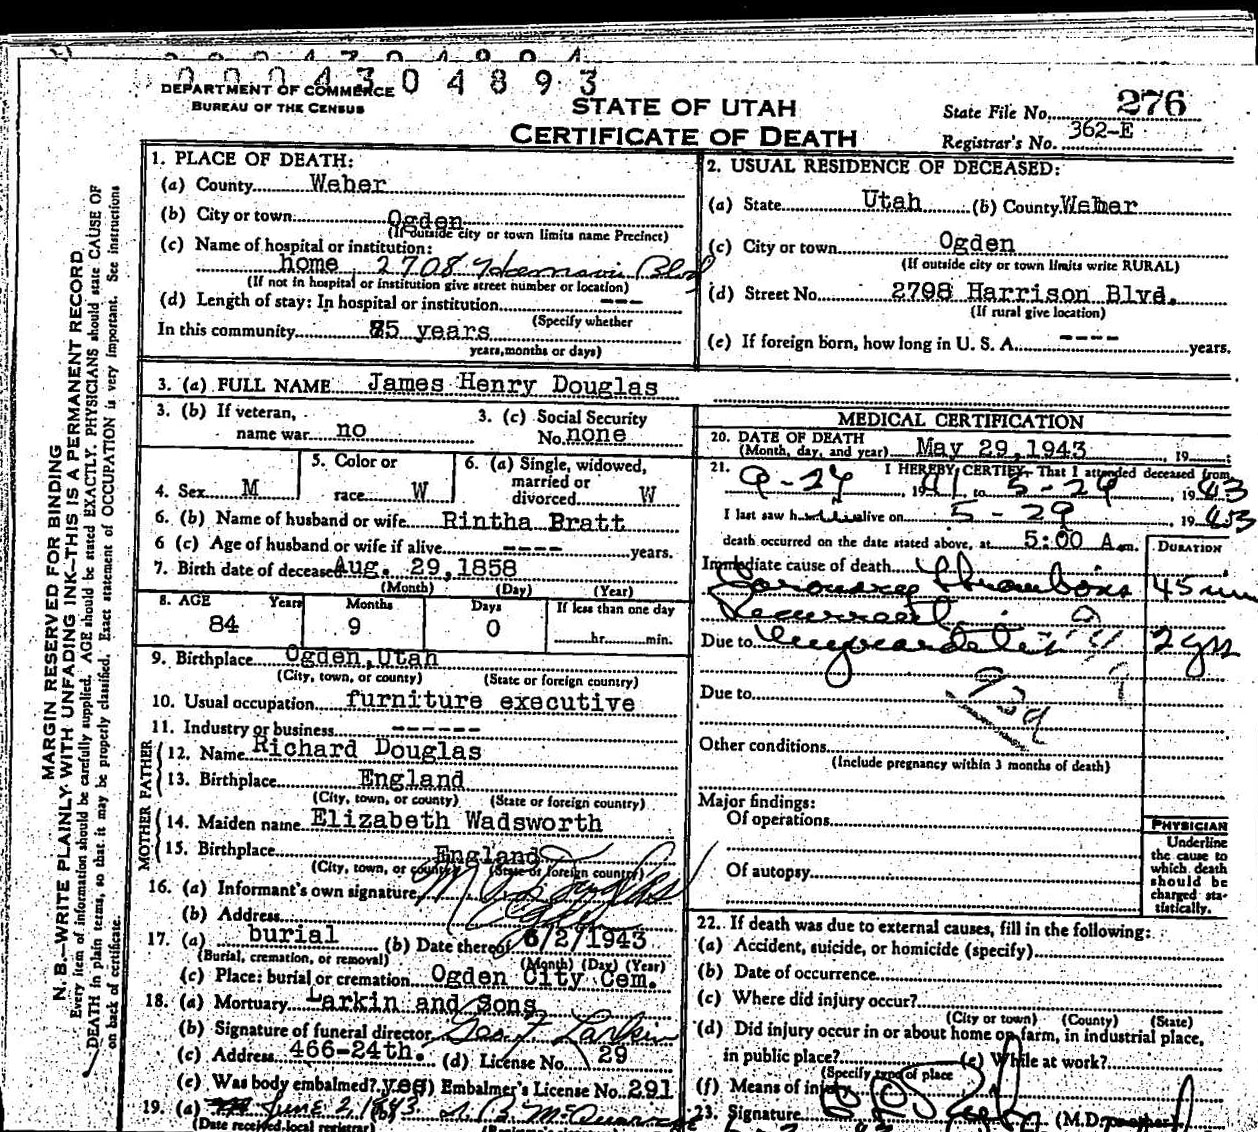 0 0 0 4 3 0 4 8 9 3
DEPARTMENT OF COMMERCE
BUREAU OF THE CENSUS
STATE OF UTAH
CERTIFICATE OF DEATH
State File No. 276
Registrar's No. 362-E
MARGIN RESERVED FOR BINDING
N. B.—WRITE PLAINLY, WITH UNFADING INK—THIS IS A PERMANENT RECORD
Every item of information should be carefully supplied. AGE should be stated EXACTLY. PHYSICIANS should state CAUSE OF
DEATH in plain terms, so that it may be properly classified. Exact statement of OCCUPATION is very important. See instructions
on back of certificate.
1. PLACE OF DEATH:
(a) County Weber
(b) City or town Ogden
(If outside city or town limits name Precinct)
(c) Name of hospital or institution:
home, 2708 Harrison Blvd
(If not in hospital or institution give street number or location)
(d) Length of stay: In hospital or institution ---
(Specify whether
In this community 85 years
years, months or days)
2. USUAL RESIDENCE OF DECEASED:
(a) State Utah (b) County Weber
(c) City or town Ogden
(If outside city or town limits write RURAL)
(d) Street No. 2798 Harrison Blvd.
(If rural give location)
(e) If foreign born, how long in U. S. A. ---- years.
3. (a) FULL NAME James Henry Douglas
3. (b) If veteran,
name war no
3. (c) Social Security
No. none
4. Sex M
5. Color or
race W
6. (a) Single, widowed,
married or
divorced W
6. (b) Name of husband or wife Rintha Bratt
6 (c) Age of husband or wife if alive ---- years.
7. Birth date of deceased Aug. 29, 1858
(Month) (Day) (Year)
8. AGE Years Months Days If less than one day
84 9 0 hr. min.
9. Birthplace Ogden, Utah
(City, town, or county) (State or foreign country)
10. Usual occupation furniture executive
11. Industry or business ------
FATHER
12. Name Richard Douglas
13. Birthplace England
(City, town, or county) (State or foreign country)
MOTHER
14. Maiden name Elizabeth Wadsworth
15. Birthplace England
(City, town, or county) (State or foreign country)
16. (a) Informant's own signature
(b) Address
17. (a) burial (b) Date thereof 6/2/1943
(Burial, cremation, or removal) (Month) (Day) (Year)
(c) Place: burial or cremation Ogden City Cem.
18. (a) Mortuary Larkin and Sons
(b) Signature of funeral director Geo F Larkin
(c) Address 466-24th. (d) License No. 29
(e) Was body embalmed? yes Embalmer's License No. 291
19. (a) June 2 1943
(Date received local registrar)
MEDICAL CERTIFICATION
20. DATE OF DEATH
(Month, day, and year) May 29, 1943, 19
21. I HEREBY CERTIFY, That I attended deceased from
9-24, 1941, to 5-29, 1943
I last saw h alive on 5-29, 1943
death occurred on the date stated above, at 5:00 A.m.
DURATION
Immediate cause of death
Coronary thrombosis 45 min
Recurrent
Due to Myocarditis 2 yrs
Due to
Other conditions
(Include pregnancy within 3 months of death)
Major findings:
Of operations
Of autopsy
PHYSICIAN
Underline
the cause to
which death
should be
charged sta-
tistically.
22. If death was due to external causes, fill in the following:
(a) Accident, suicide, or homicide (specify)
(b) Date of occurrence
(c) Where did injury occur?
(City or town) (County) (State)
(d) Did injury occur in or about home on farm, in industrial place,
in public place? (e) While at work?
(Specify type of place
(f) Means of injury
23. Signature (M.D.